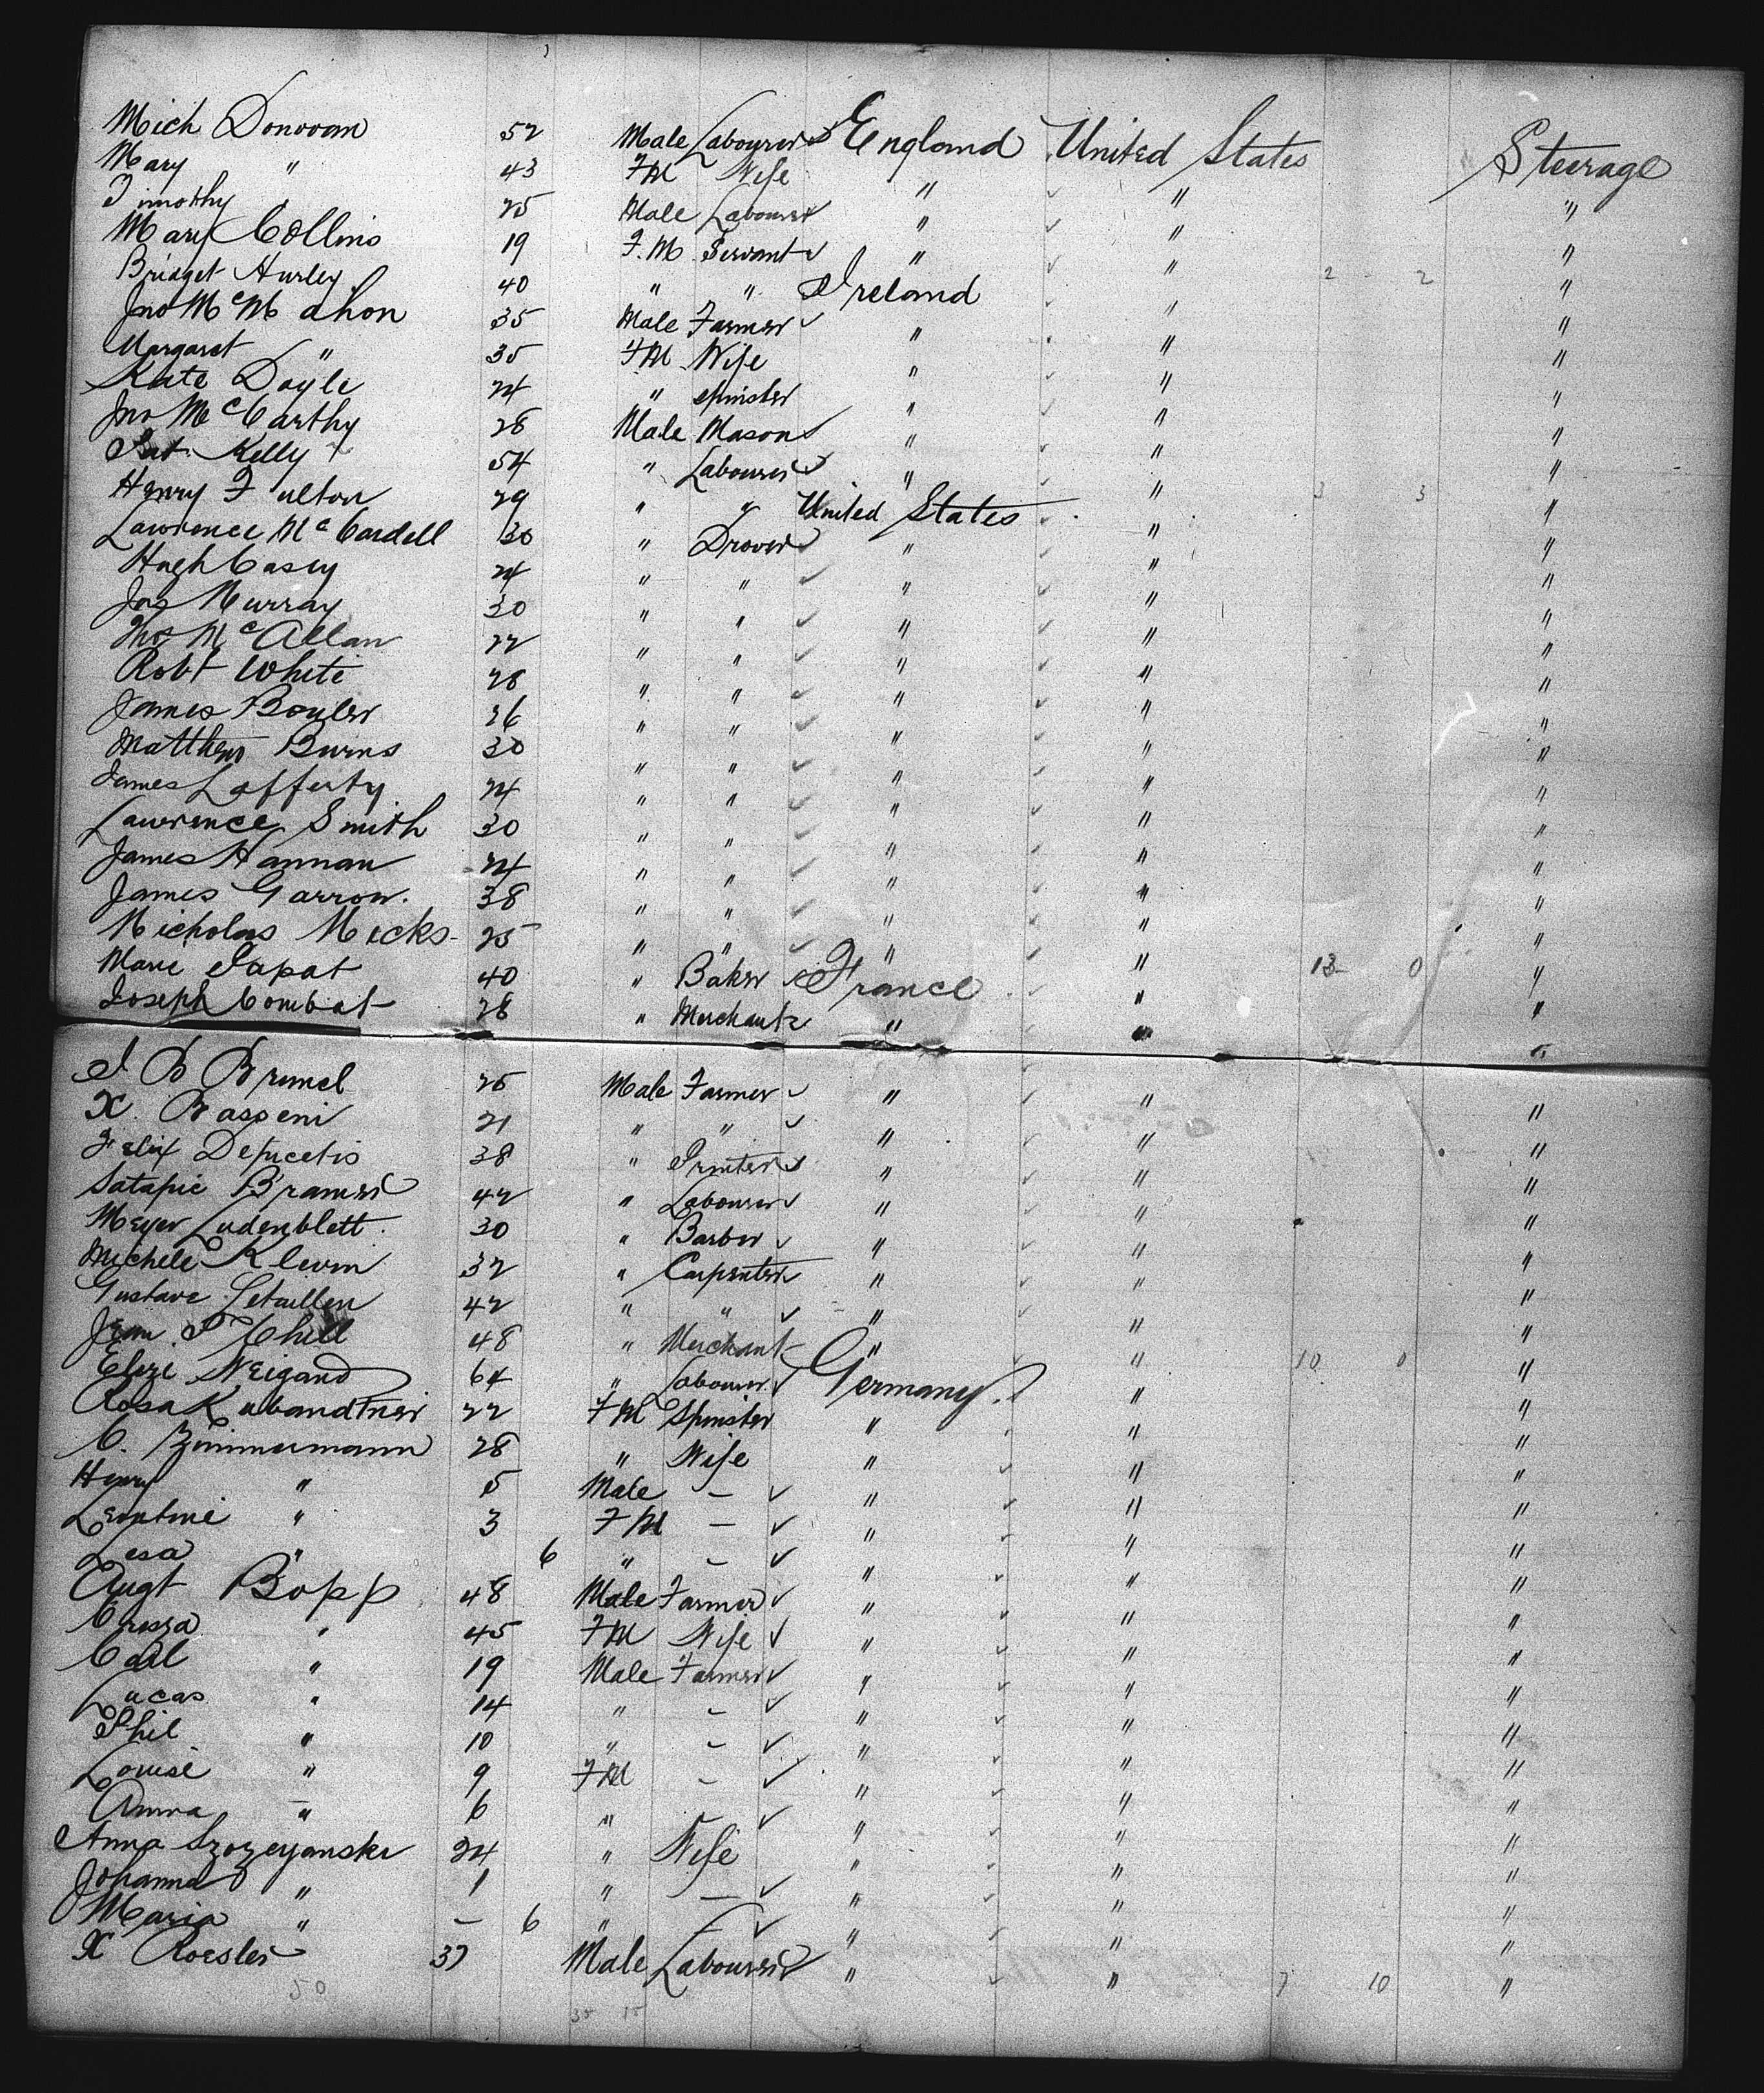 Mich Donovan 52 Male Labourer England United States Steerage
Mary " 43 FM Wife " " "
Timothy " 25 Male Labourer " " "
Mary Collins 19 F.M Servant " " " 2 2
Bridget Hurley 40 " " Ireland " "
Jno McMahon 35 Male Farmer " " "
Margaret " 35 FM Wife " " "
Kate Doyle 24 " Spinster " " "
Jno McCarthy 28 Male Mason " " "
Pat Kelly 54 " Labourer " " 3 3 "
Henry Fulton 29 " " United States " "
Lawrence McCardell 30 " Drover " " "
Hugh Casey 24 " " " " "
Jas Murray 30 " " " " "
Thos McAllan 22 " " " " "
Robt White 28 " " " " "
James Boyler 26 " " " " "
Matthew Burns 30 " " " " "
James Lafferty 24 " " " " "
Lawrence Smith 30 " " " " "
James Hannan 24 " " " " "
James Garrow. 38 " " " " "
Nicholas Micks 25 " " " " 13 0 "
Marie Papat 40 " Baker France " "
Joseph Combat 28 " Merchant " " "
J B Brunel 25 Male Farmer " " "
X. Basseni 21 " " " " "
Felix Depucetis 38 " Printer " " "
Bramer 42 " Labourer " " "
Meyer Ludenblett 30 " Barber " " "
Michele Klevin 32 " Carpenter " " "
Gustave Letaillen 42 " " " " "
Jean Chill 48 " Merchant " " 10 0 "
Weigand 64 " Labourer Germany " "
Rosa Kubandtner 22 FM Spinster " " "
C. Zimmermann 28 " Wife " " "
Henry " 5 Male – " " "
Leontine " 3 FM – " " "
Lesa " 6 " – " " "
Augt Bopp 48 Male Farmer " " "
Cresza " 45 FM Wife " " "
Carl " 19 Male Farmer " " "
Lucas " 14 " – " " "
Phil " 10 " – " " "
Louise " 9 FM – " " "
Anna " 6 " " " "
Anna Szozeyanski 24 " Wife " " "
Johanna " 1 " – " " "
Maria " – 6 " – " " "
X Roesler 37 Male Labourer " " 7 10 "
50 35 15